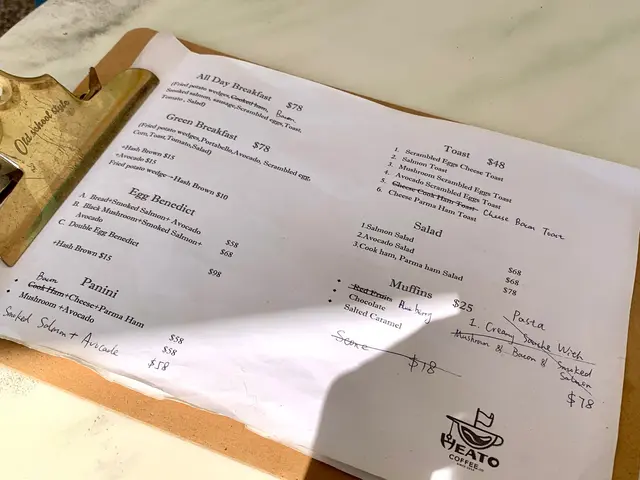 Old school style
All Day Breakfast $78
(Fried potato wedges, Cooked ham, Bacon
Smoked salmon, sausage, Scrambled eggs, Toast,
Tomato, Salad)
Green Breakfast $78
(Fried potato wedges, Portabello, Avocado, Scrambled egg,
Corn, Toast, Tomato, Salad)
+Hash Brown $15
+Avocado $15
Fried potato wedge→Hash Brown $10
Egg Benedict
A. Bread+Smoked Salmon+ Avocado $58
B. Black Mushroom+Smoked Salmon+
Avocado $68
C. Double Egg Benedict $98
+Hash Brown $15
Panini
Bacon
• Cook Ham+Cheese+Parma Ham $58
• Mushroom +Avocado $58
Smoked Salmon + Avocado $58
Toast $48
1. Scrambled Eggs Cheese Toast
2. Salmon Toast
3. Mushroom Scrambled Eggs Toast
4. Avocado Scrambled Eggs Toast
5. Cheese Cook Ham Toast Cheese Bacon Toast
6. Cheese Parma Ham Toast
Salad
1.Salmon Salad $68
2.Avocado Salad $68
3.Cook ham, Parma ham Salad $78
Muffins $25
• Red Fruits
• Chocolate
• Salted Caramel
Scone $18
Pasta
1. Creamy Sauce With
Mushroom & Bacon & Smoked
Salmon
$78
HEATO
COFFEE